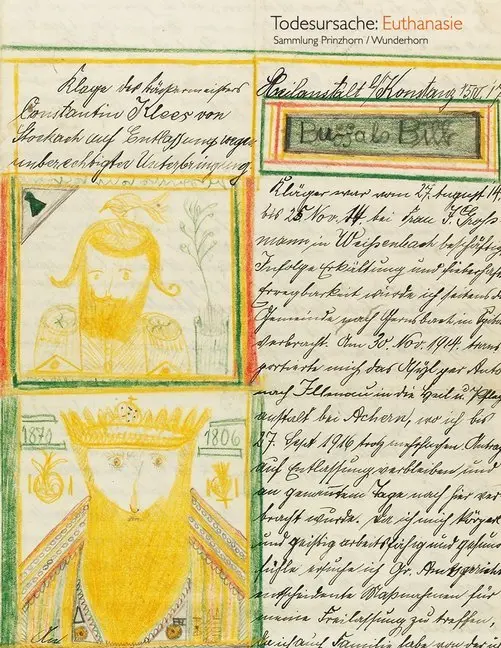 Todesursache: Euthanasie
Sammlung Prinzhorn / Wunderhorn
Klage des Bäckermeisters
Constantin Klees von
Stockach auf Entlassung wegen
unberechtigter Unterbringung
Heilanstalt b/Konstanz 15/III 17
Buffalo Bill
Kläger war vom 27. August 14.
bis 25. Nov. 14 bei Frau F. Groß
mann in Weissenbach beschäftig
Infolge Erkältung und fieberhaf
Erregbarkeit wurde ich seitens d
Gemeinde nach Gernsbach in
verbracht. Am 30. Nov. 1914. trans
porterte mich das Asyl per Auto
nach Illenau in die Heil u Pfleg
anstalt bei Achern, wo ich bis
27. Sept 1916 trotz mehrfachen Antra
auf Entlassung verbleiben und
an genanntem Tage nach hier ver
bracht wurde. Da ich mich körper
und geistig arbeitsfähig und gesun
fühle ersuche ich Gr. Amtsgericht
entscheidente Maßnahmen für
meine Freilassung zu treffen,
da ich auch Familie habe von der i
1871
1806